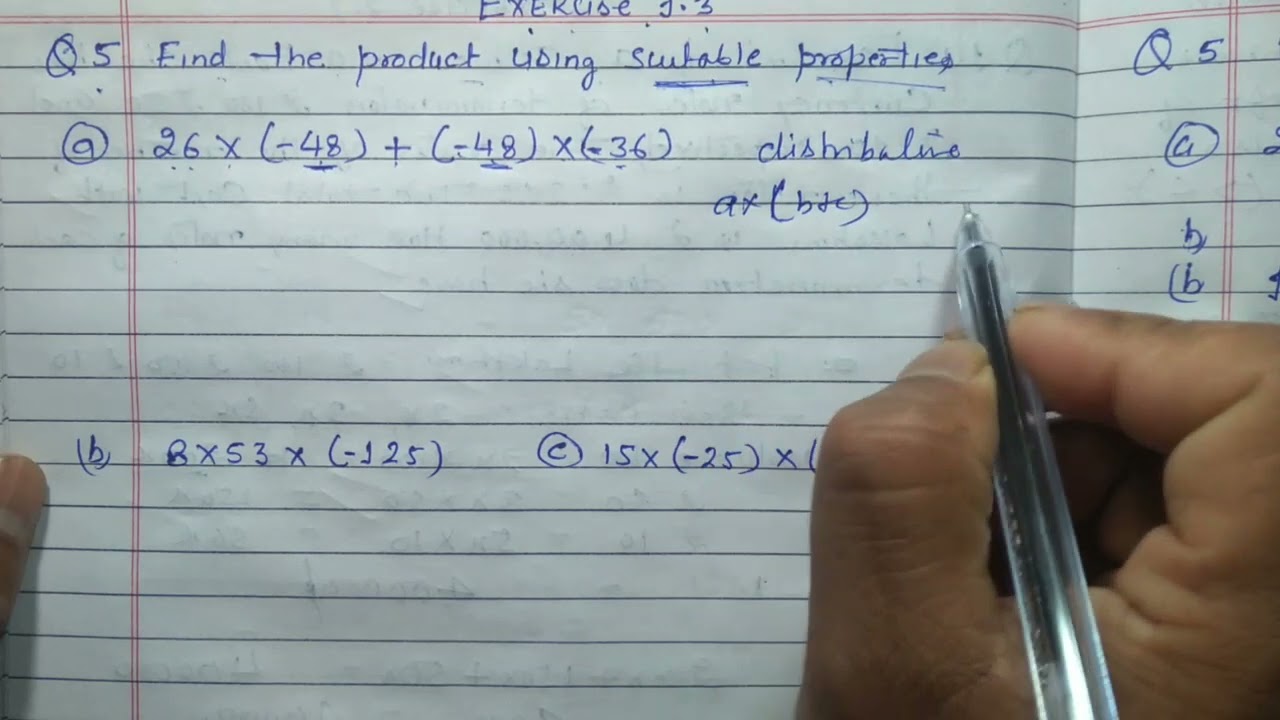 EXERCISE 1.3
Q5 Find the product using suitable properties
(a) 26 × (-48) + (-48) × (-36) distributive
a×(b+c)
(b) 8×53 × (-125) (c) 15× (-25) × (
Q 5
(a) 2
b)
(b